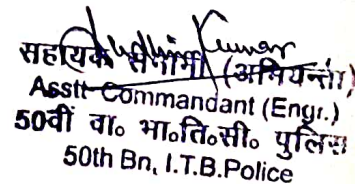 सहायक सेनानी (अभियन्ता)
Asstt Commandant (Engr.)
50वीं वा० भा०ति०सी० पुलिस
50th Bn, I.T.B.Police